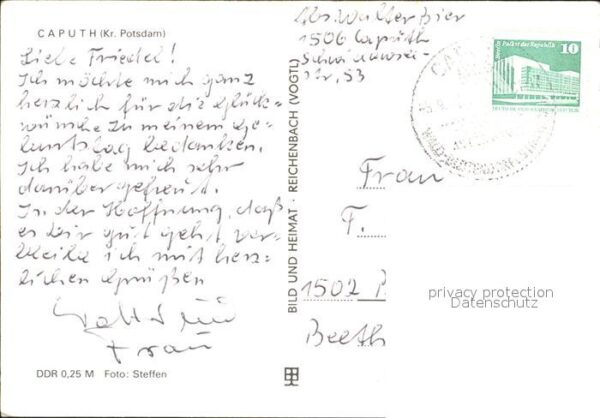 CAPUTH (Kr. Potsdam)
Liebe Friedel!
Ich möchte mich ganz
herzlich für die Glück-
wünsche zu meinem Ge-
burtstag bedanken.
Ich habe mich sehr
darüber gefreut.
In der Hoffnung, daß
es Dir gut geht ver-
bleibe ich mit herz-
lichen Grüßen
Frau
DDR 0,25 M Foto: Steffen
BILD UND HEIMAT · REICHENBACH (VOGTL)
Abs. Walter Bier
1506 Caputh
str. 53
Berlin Palast der Republik 10
DEUTSCHE DEMOKRATISCHE REPUBLIK
Frau
F.
1502 P
Beeth
privacy protection
Datenschutz